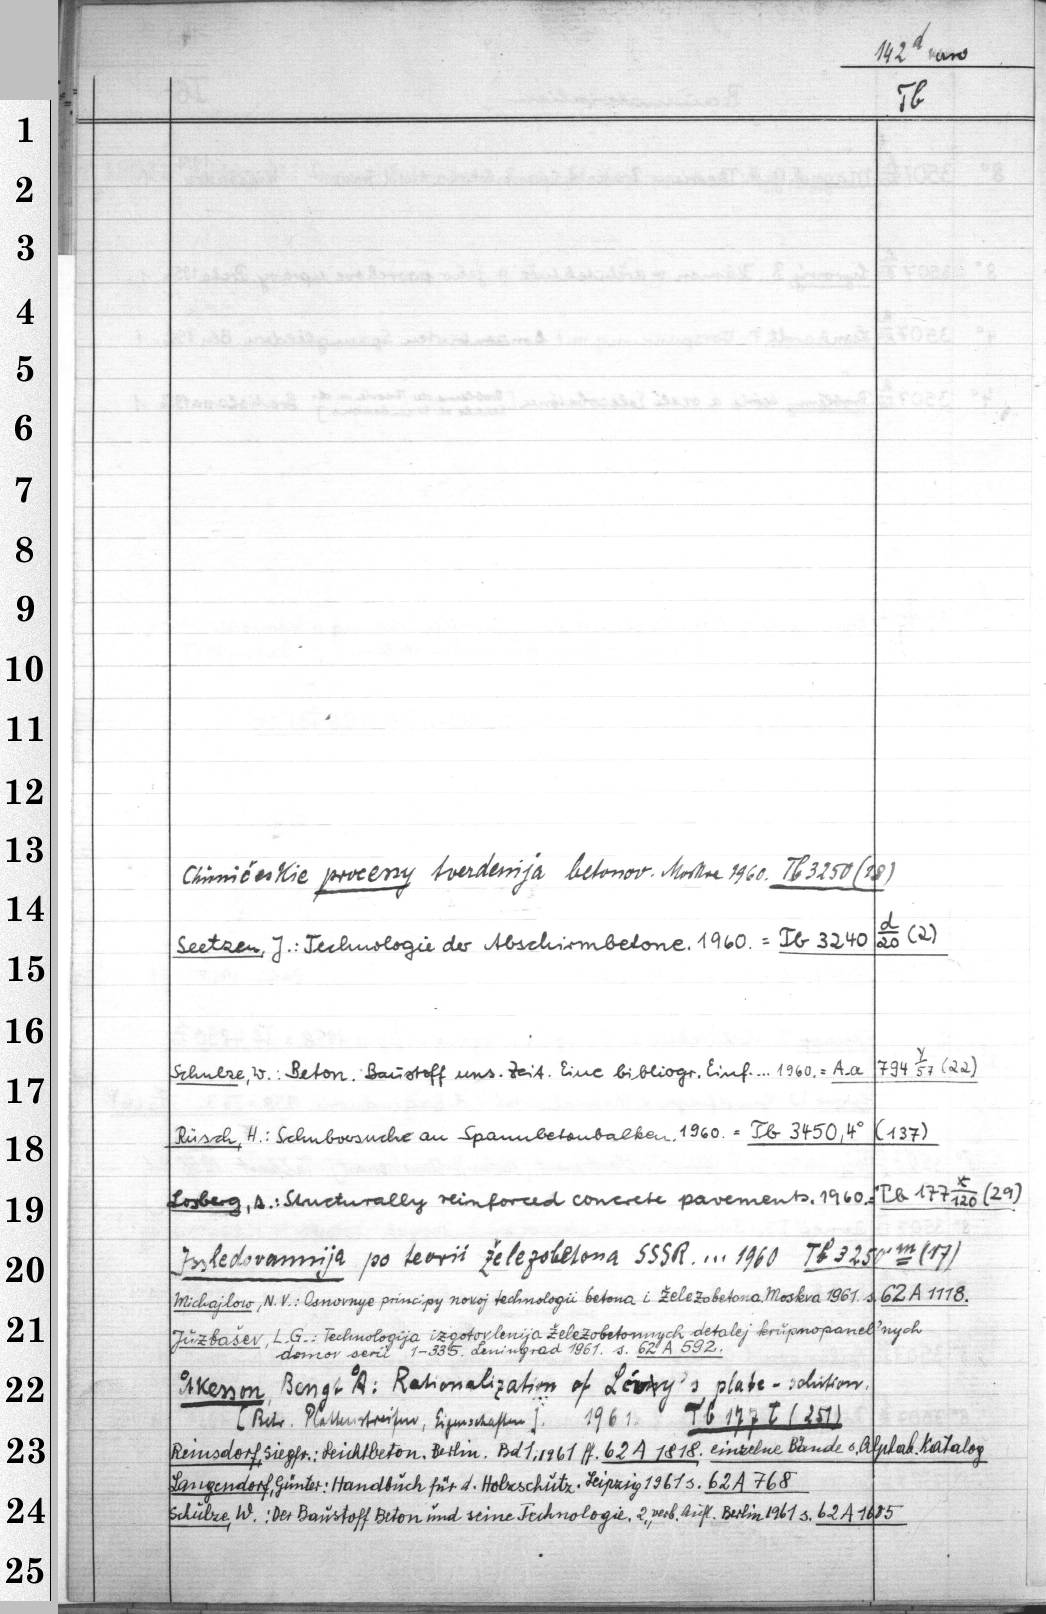 142d verso
Tb
1
2
3
4
5
6
7
8
9
10
11
12
13
Chimičeskie processy tverdenija betonov. Moskva 1960. Tb 3250 (18)
14
Seetzen, J.: Technologie der Abschirmbetone. 1960. = Tb 3240 d/20 (2)
15
16
Schulze, W.: Beton. Baustoff uns. Zeit. Eine bibliogr. Einf.... 1960. = Aa 794 y/57 (22)
17
Rüsch, H.: Schubversuche an Spannbetonbalken. 1960. = Tb 3450, 4° (137)
18
Losberg, A.: Structurally reinforced concrete pavements. 1960. = Tb 177 x/120 (29)
19
Issledovannija po teorii železobetona SSSR. ... 1960 Tb 3250 m (17)
20
Michajlow, N.V.: Osnovnye principy novoj technologii betona i železobetona. Moskva 1961. s. 62 A 1118.
21
Jūzbašev, L.G.: Technologija izgotovlenija železobetonnych detalej krŭpnopanel'nych
domov serii 1-335. Leningrad 1961. s. 62 A 592.
22
Åkesson, Bengt Å: Rationalization of Lévy's plate-solution.
[Betr. Plattenstreifen, Eigenschaften]. 1961. Tb 177 t (251)
23
Reinsdorf, Siegfr.: Leichtbeton. Berlin. Bd 1, 1961 ff. 62 A 1818. einzelne Bände s. Alphab. Katalog
Langendorf, Günter: Handbuch für d. Holzschutz. Leipzig 1961 s. 62 A 768
24
Schulze, W.: Der Baustoff Beton und seine Technologie. 2., verb. Aufl. Berlin 1961 s. 62 A 1685
25